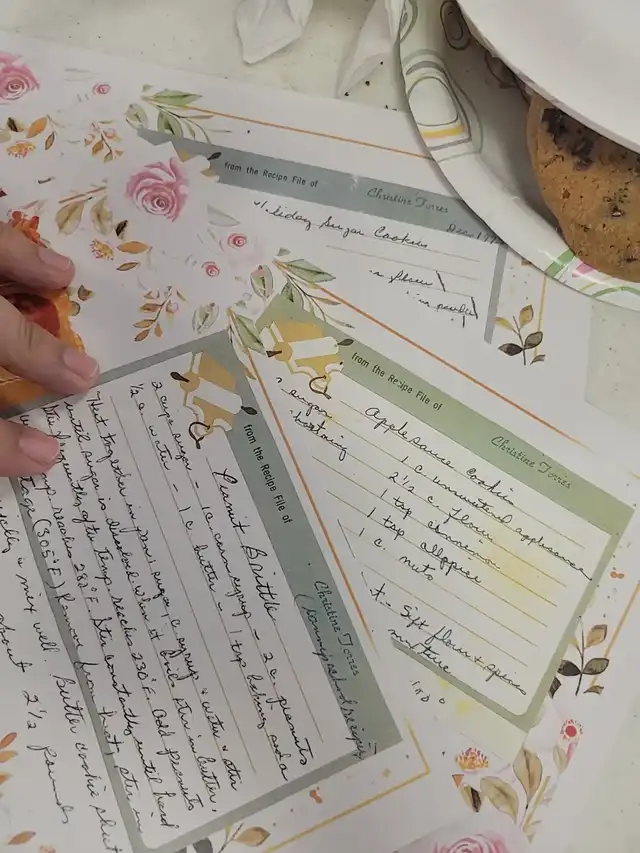 from the Recipe File of Christine Torres
Holiday Sugar Cookies
flour
from the Recipe File of Christine Torres
Applesauce Cookies
sugar
1 c unsweetened applesauce
shortening
2 1/2 c. flour
1 tsp cinnamon
1 tsp allspice
1 c. nuts
Sift flour & spices
mixture
from the Recipe File of Christine Torres
Peanut Brittle
2 cups sugar - 1 c corn syrup - 2 c. peanuts
1/2 c water - 1 c. butter - 1 tsp baking soda
Heat together in pan, sugar, c. syrup & water & stir
until sugar is dissolved. When it boils stir in butter,
after temp reaches 230°F. add peanuts
temp reaches 281°F. Stir constantly until hard
(305°F) Remove from heat, stir in
quickly & mix well. Butter cookie sheet
about 2 1/2 pounds